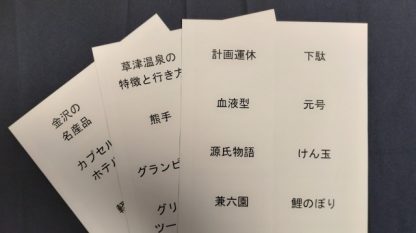 金沢の
名産品
カプセル
ホテル
草津温泉の
特徴と行き方
熊手
グランピ
グリ
ツー
計画運休
下駄
血液型
元号
源氏物語
けん玉
兼六園
鯉のぼり